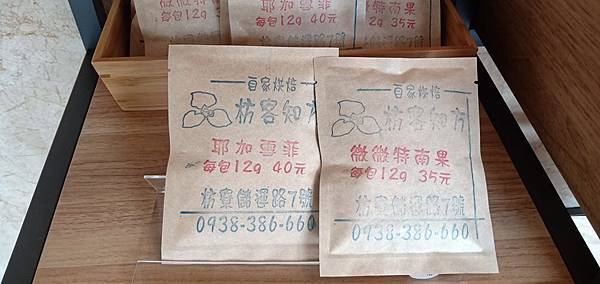 微微特
每包12g
耶加雪菲
每包12g 40元
枋寮儲運路7號
特南果
2g 35元
路7號
自家烘焙
枋客知方
耶加雪菲
每包12g 40元
枋寮儲運路7號
0938-386-660
自家烘焙
枋客知方
微微特南果
每包12g 35元
枋寮儲運路7號
0938-386-660